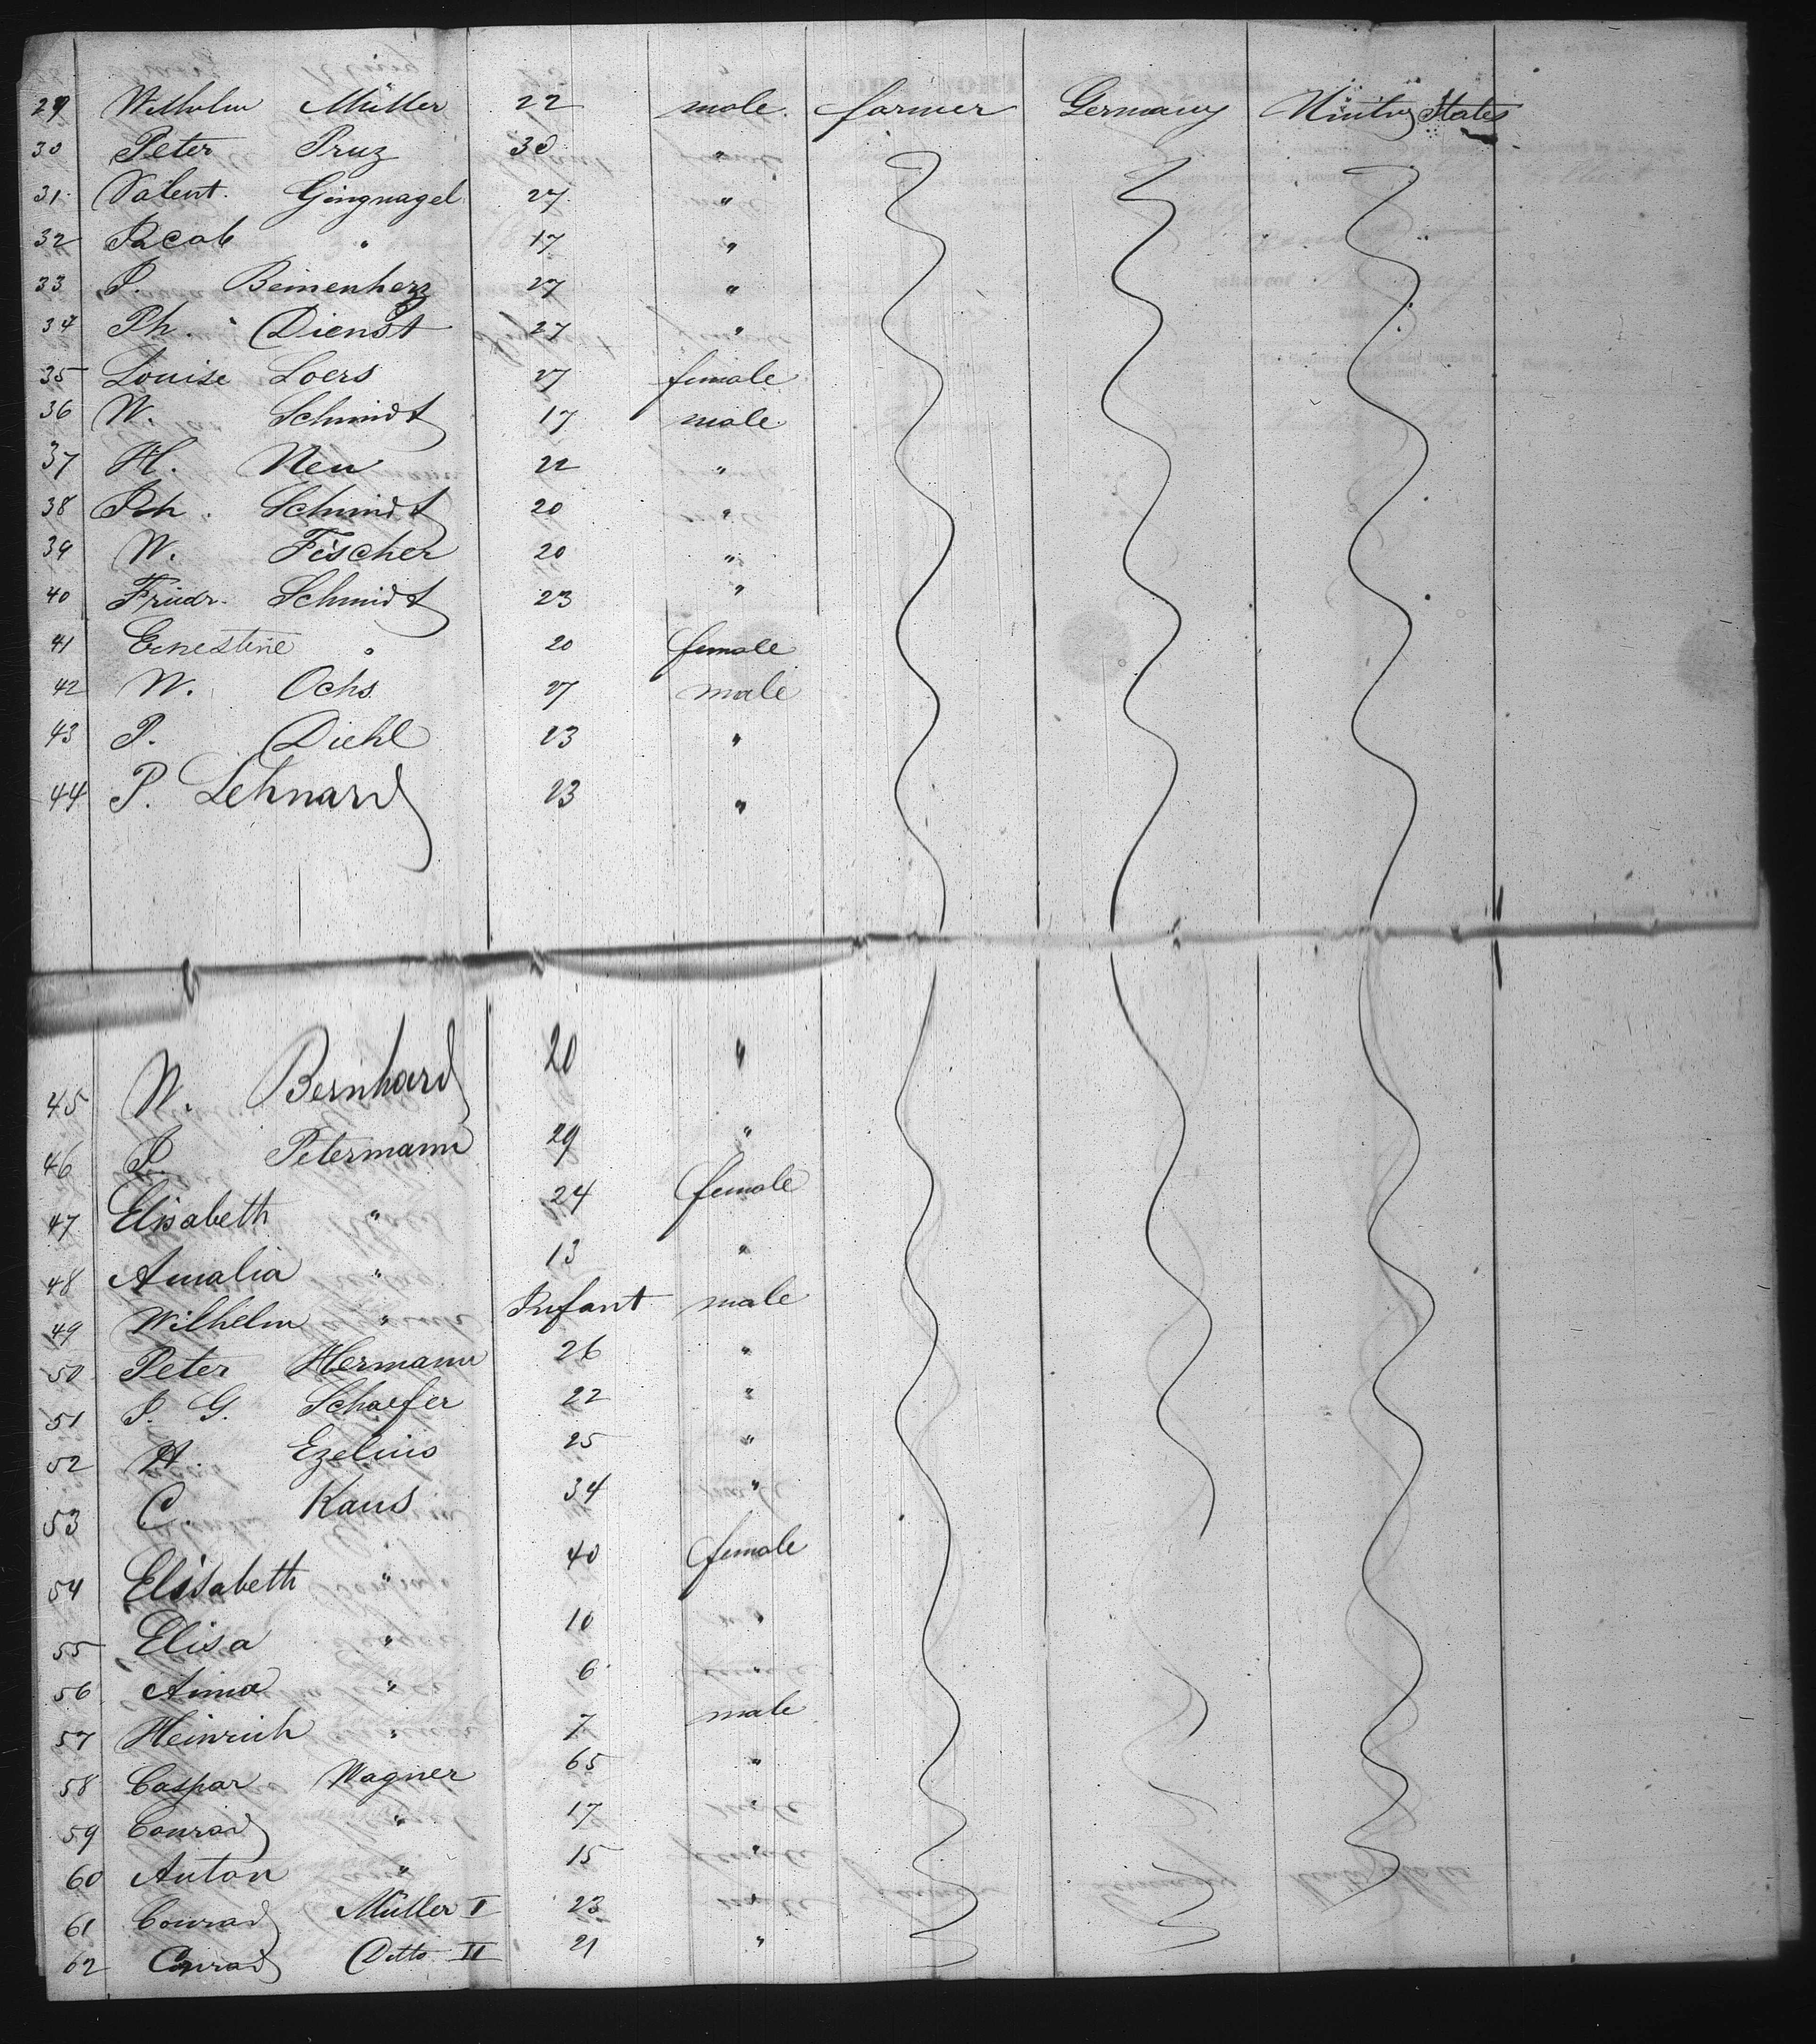 29 Wilhelm Müller 22 male. farmer Germany United States
30 Peter Pruz 30 "
31. Valent. Gingnagel 27 "
32 Jacob " 17 "
33 J. Beinenherz 27 "
34 Ph. Dienst 27 "
35 Louise Loers 27 female
36 W. Schmidt 17 male.
37 H. Neu 22 "
38 Joh. Schmidt 20 "
39 W. Fischer 20 "
40 Friedr. Schmidt 23 "
41 Ernestine " 20 female
42 W. Ochs 27 male
43 P. Diehl 23 "
44 P. Lehnard 23 "
45 W. Bernhard 20 "
46 J. Petermann 29 "
47 Elisabeth " 24 female
48 Amalia " 13 "
49 Wilhelm " Infant male
50 Peter Hermann 26 "
51 J. G. Schaefer 22 "
52 H. Ezelius 25 "
53 C. Kaus 34 "
54 Elisabeth " 40 female
55 Elisa " 10 "
56 Anna " 6 "
57 Heinrich " 7 male
58 Caspar Wagner 65 "
59 Conrad " 17 "
60 Anton " 15 "
61 Conrad Müller I 23 "
62 Conrad Ditto II 21 "